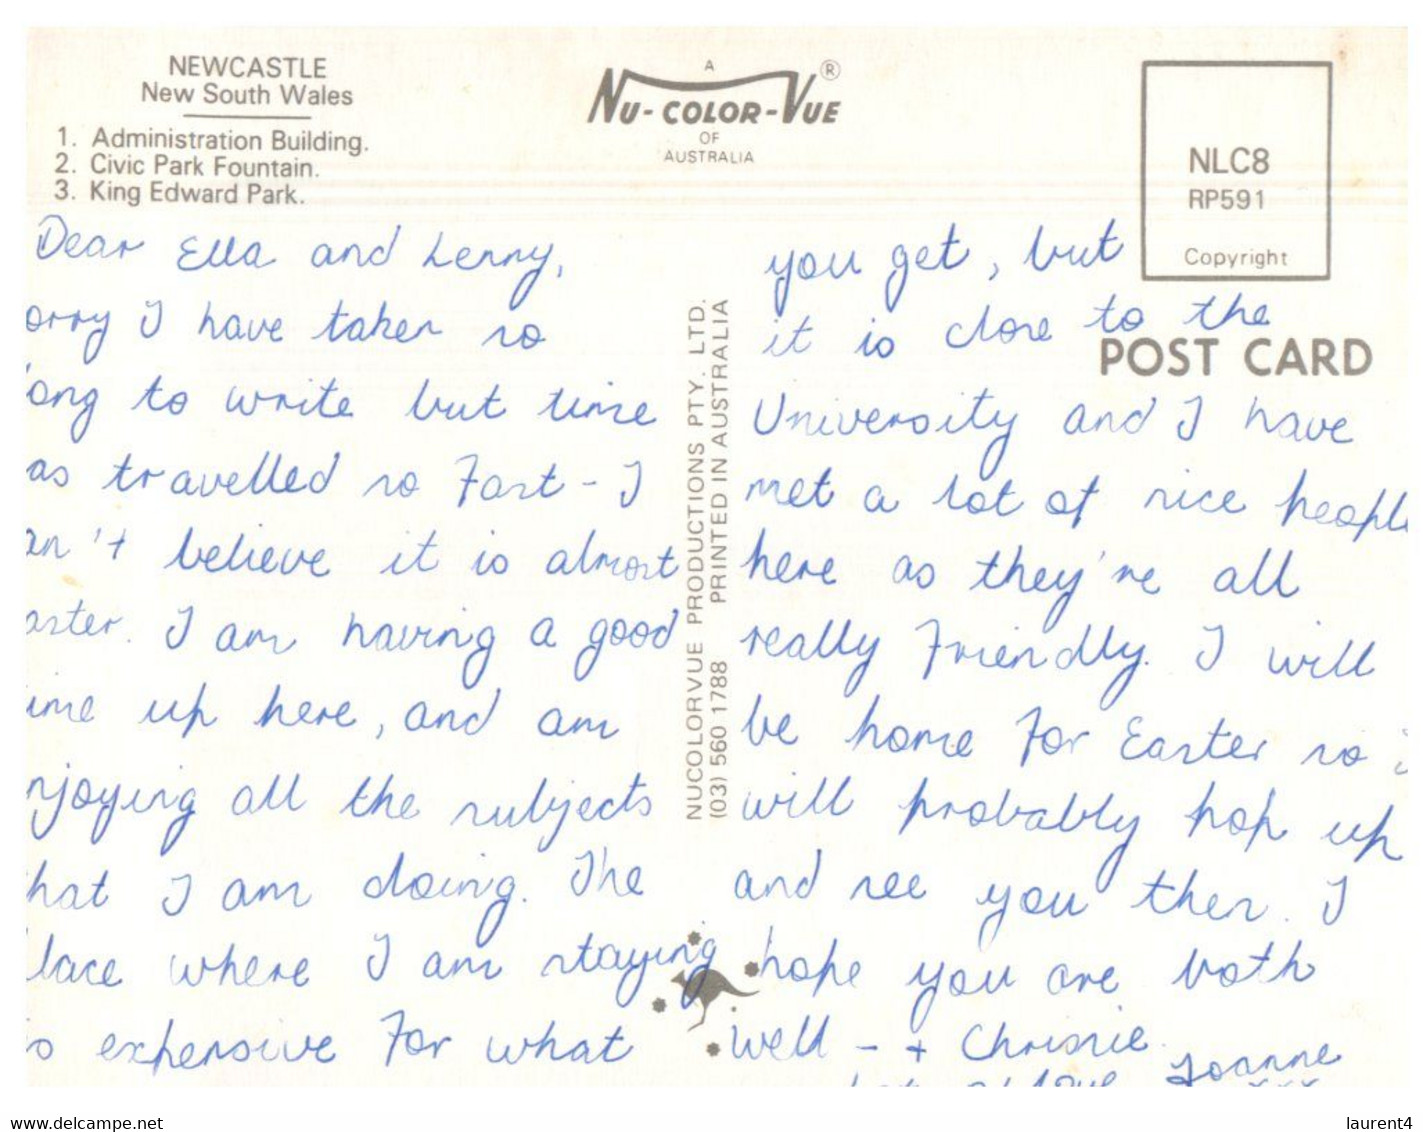 NEWCASTLE
New South Wales
1. Administration Building.
2. Civic Park Fountain.
3. King Edward Park.
A
NU-COLOR-VUE ®
OF
AUSTRALIA
NLC8
RP591
Copyright
POST CARD
Dear Ella and Lenny,
orry I have taken so
long to write but time
as travelled so fast - I
an't believe it is almost
aster. I am having a good
ime up here, and am
njoying all the subjects
hat I am doing. The
lace where I am staying
is expensive for what
NUCOLORVUE PRODUCTIONS PTY. LTD.
(03) 560 1788 PRINTED IN AUSTRALIA
you get, but
it is close to the
University and I have
met a lot of nice people
here as they're all
really friendly. I will
be home for Easter so I
will probably hop up
and see you then. I
hope you are both
well - + Chrisnie.
love Joanne
xxx
www.delcampe.net
laurent4